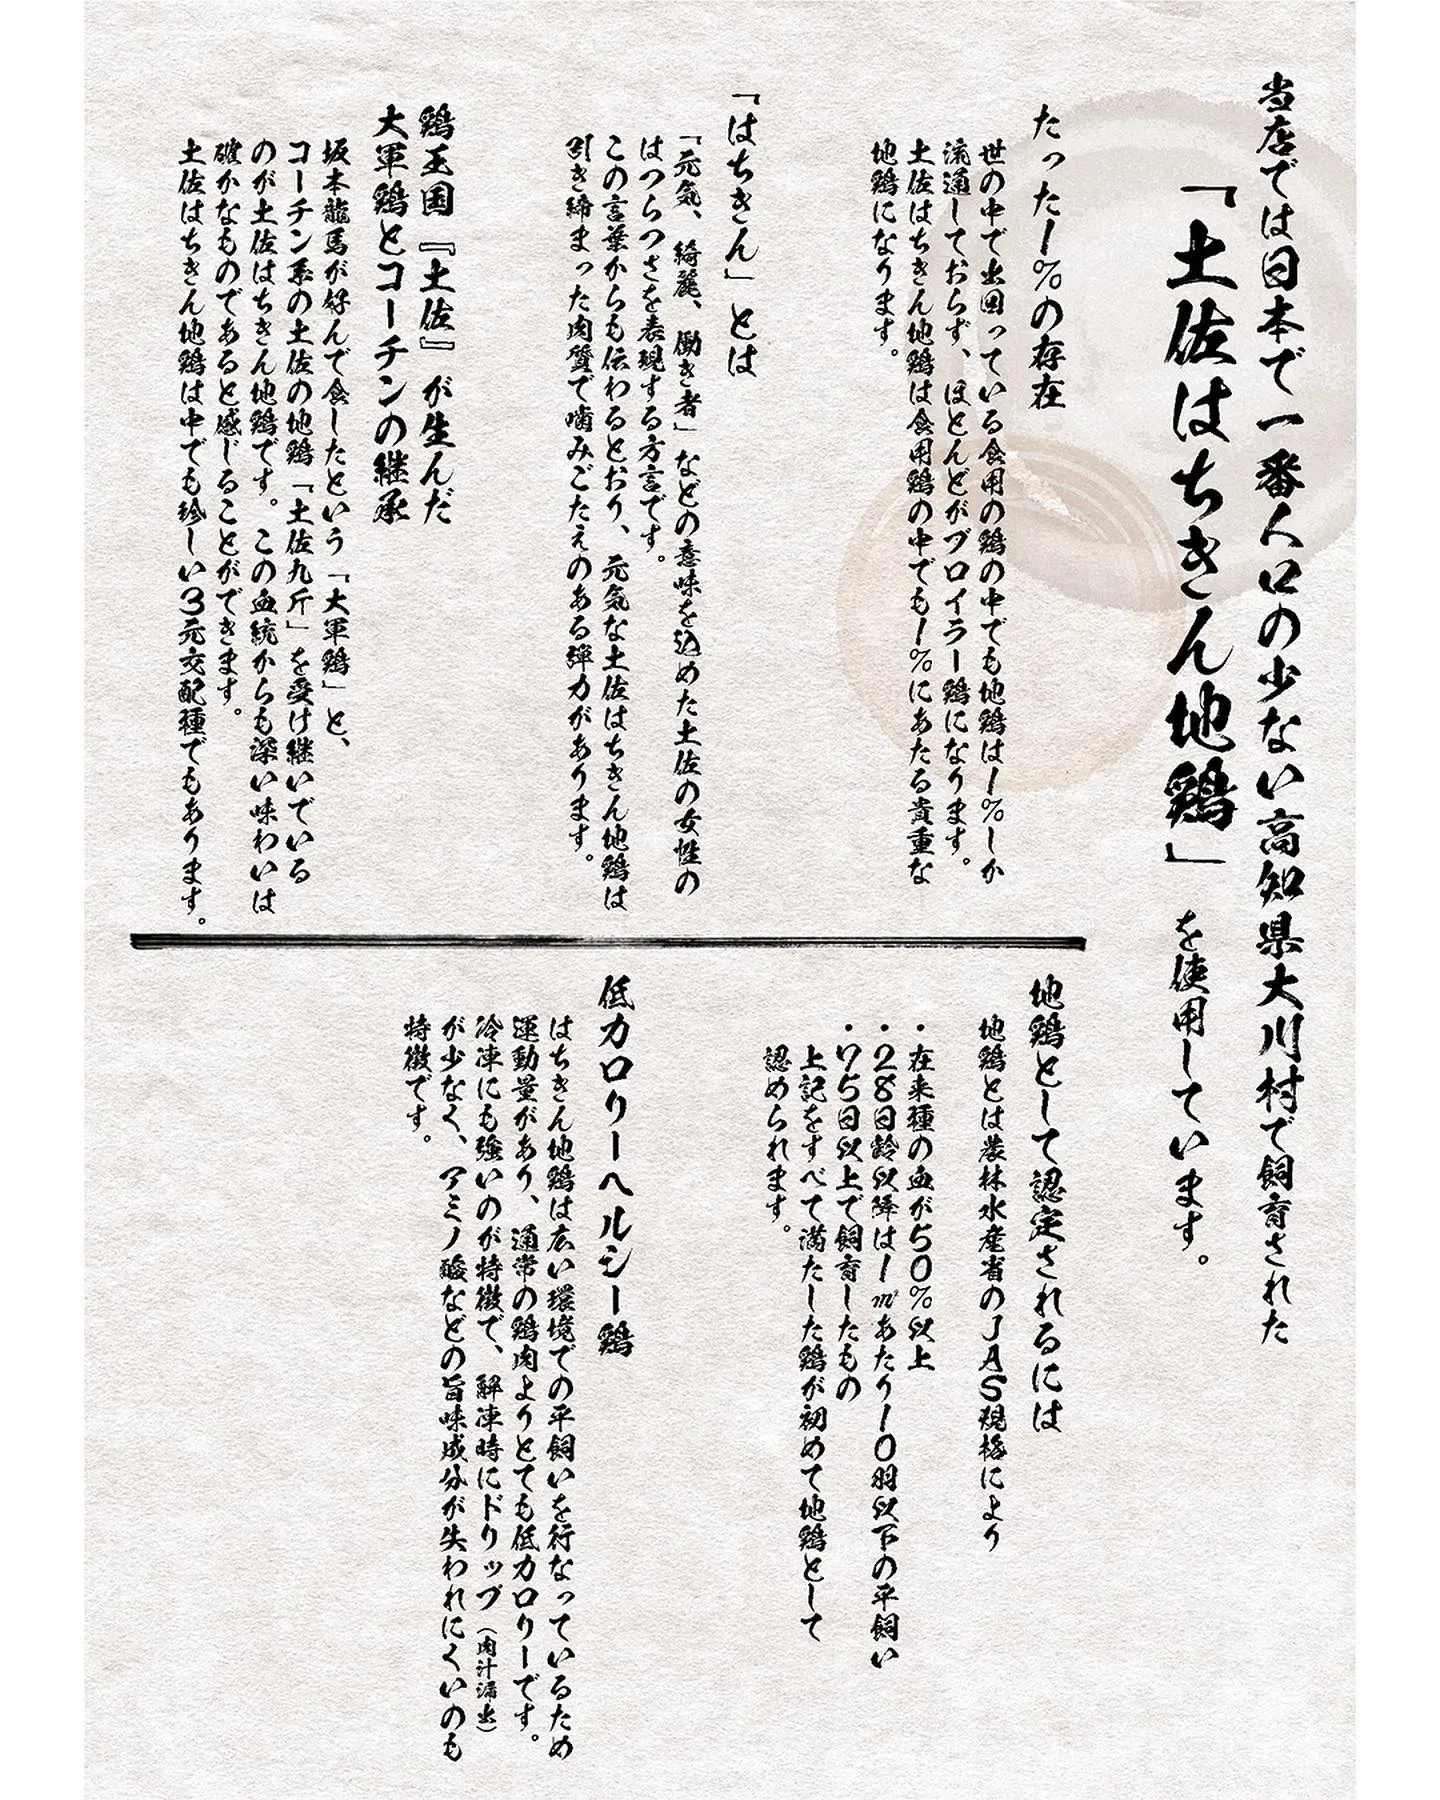 当店では日本で一番人口の少ない高知県大川村で飼育された
「土佐はちきん地鶏」を使用しています。
たった1%の存在
世の中で出回っている食用の鶏の中でも地鶏は1%しか
流通しておらず、ほとんどがブロイラー鶏になります。
土佐はちきん地鶏は食用鶏の中でも1%にあたる貴重な
地鶏になります。
「はちきん」とは
「元気、綺麗、働き者」などの意味を込めた土佐の女性の
はつらつさを表現する方言です。
この言葉からも伝わるとおり、元気な土佐はちきん地鶏は
引き締まった肉質で噛みごたえのある弾力があります。
鶏王国『土佐』が生んだ
大軍鶏とコーチンの継承
坂本龍馬が好んで食したという「大軍鶏」と、
コーチン系の土佐の地鶏「土佐九斤」を受け継いでいる
のが土佐はちきん地鶏です。この血統からも深い味わいは
確かなものであると感じることができます。
土佐はちきん地鶏は中でも珍しい3元交配種でもあります。
地鶏として認定されるには
地鶏とは農林水産省のJAS規格により
・在来種の血が50%以上
・28日齢以降は1㎡あたり10羽以下の平飼い
・75日以上で飼育したもの
上記をすべて満たした鶏が初めて地鶏として
認められます。
低カロリーヘルシー鶏
はちきん地鶏は広い環境での平飼いを行なっているため
運動量があり、通常の鶏肉よりとても低カロリーです。
冷凍にも強いのが特徴で、解凍時にドリップ(肉汁漏出)
が少なく、アミノ酸などの旨味成分が失われにくいのも
特徴です。